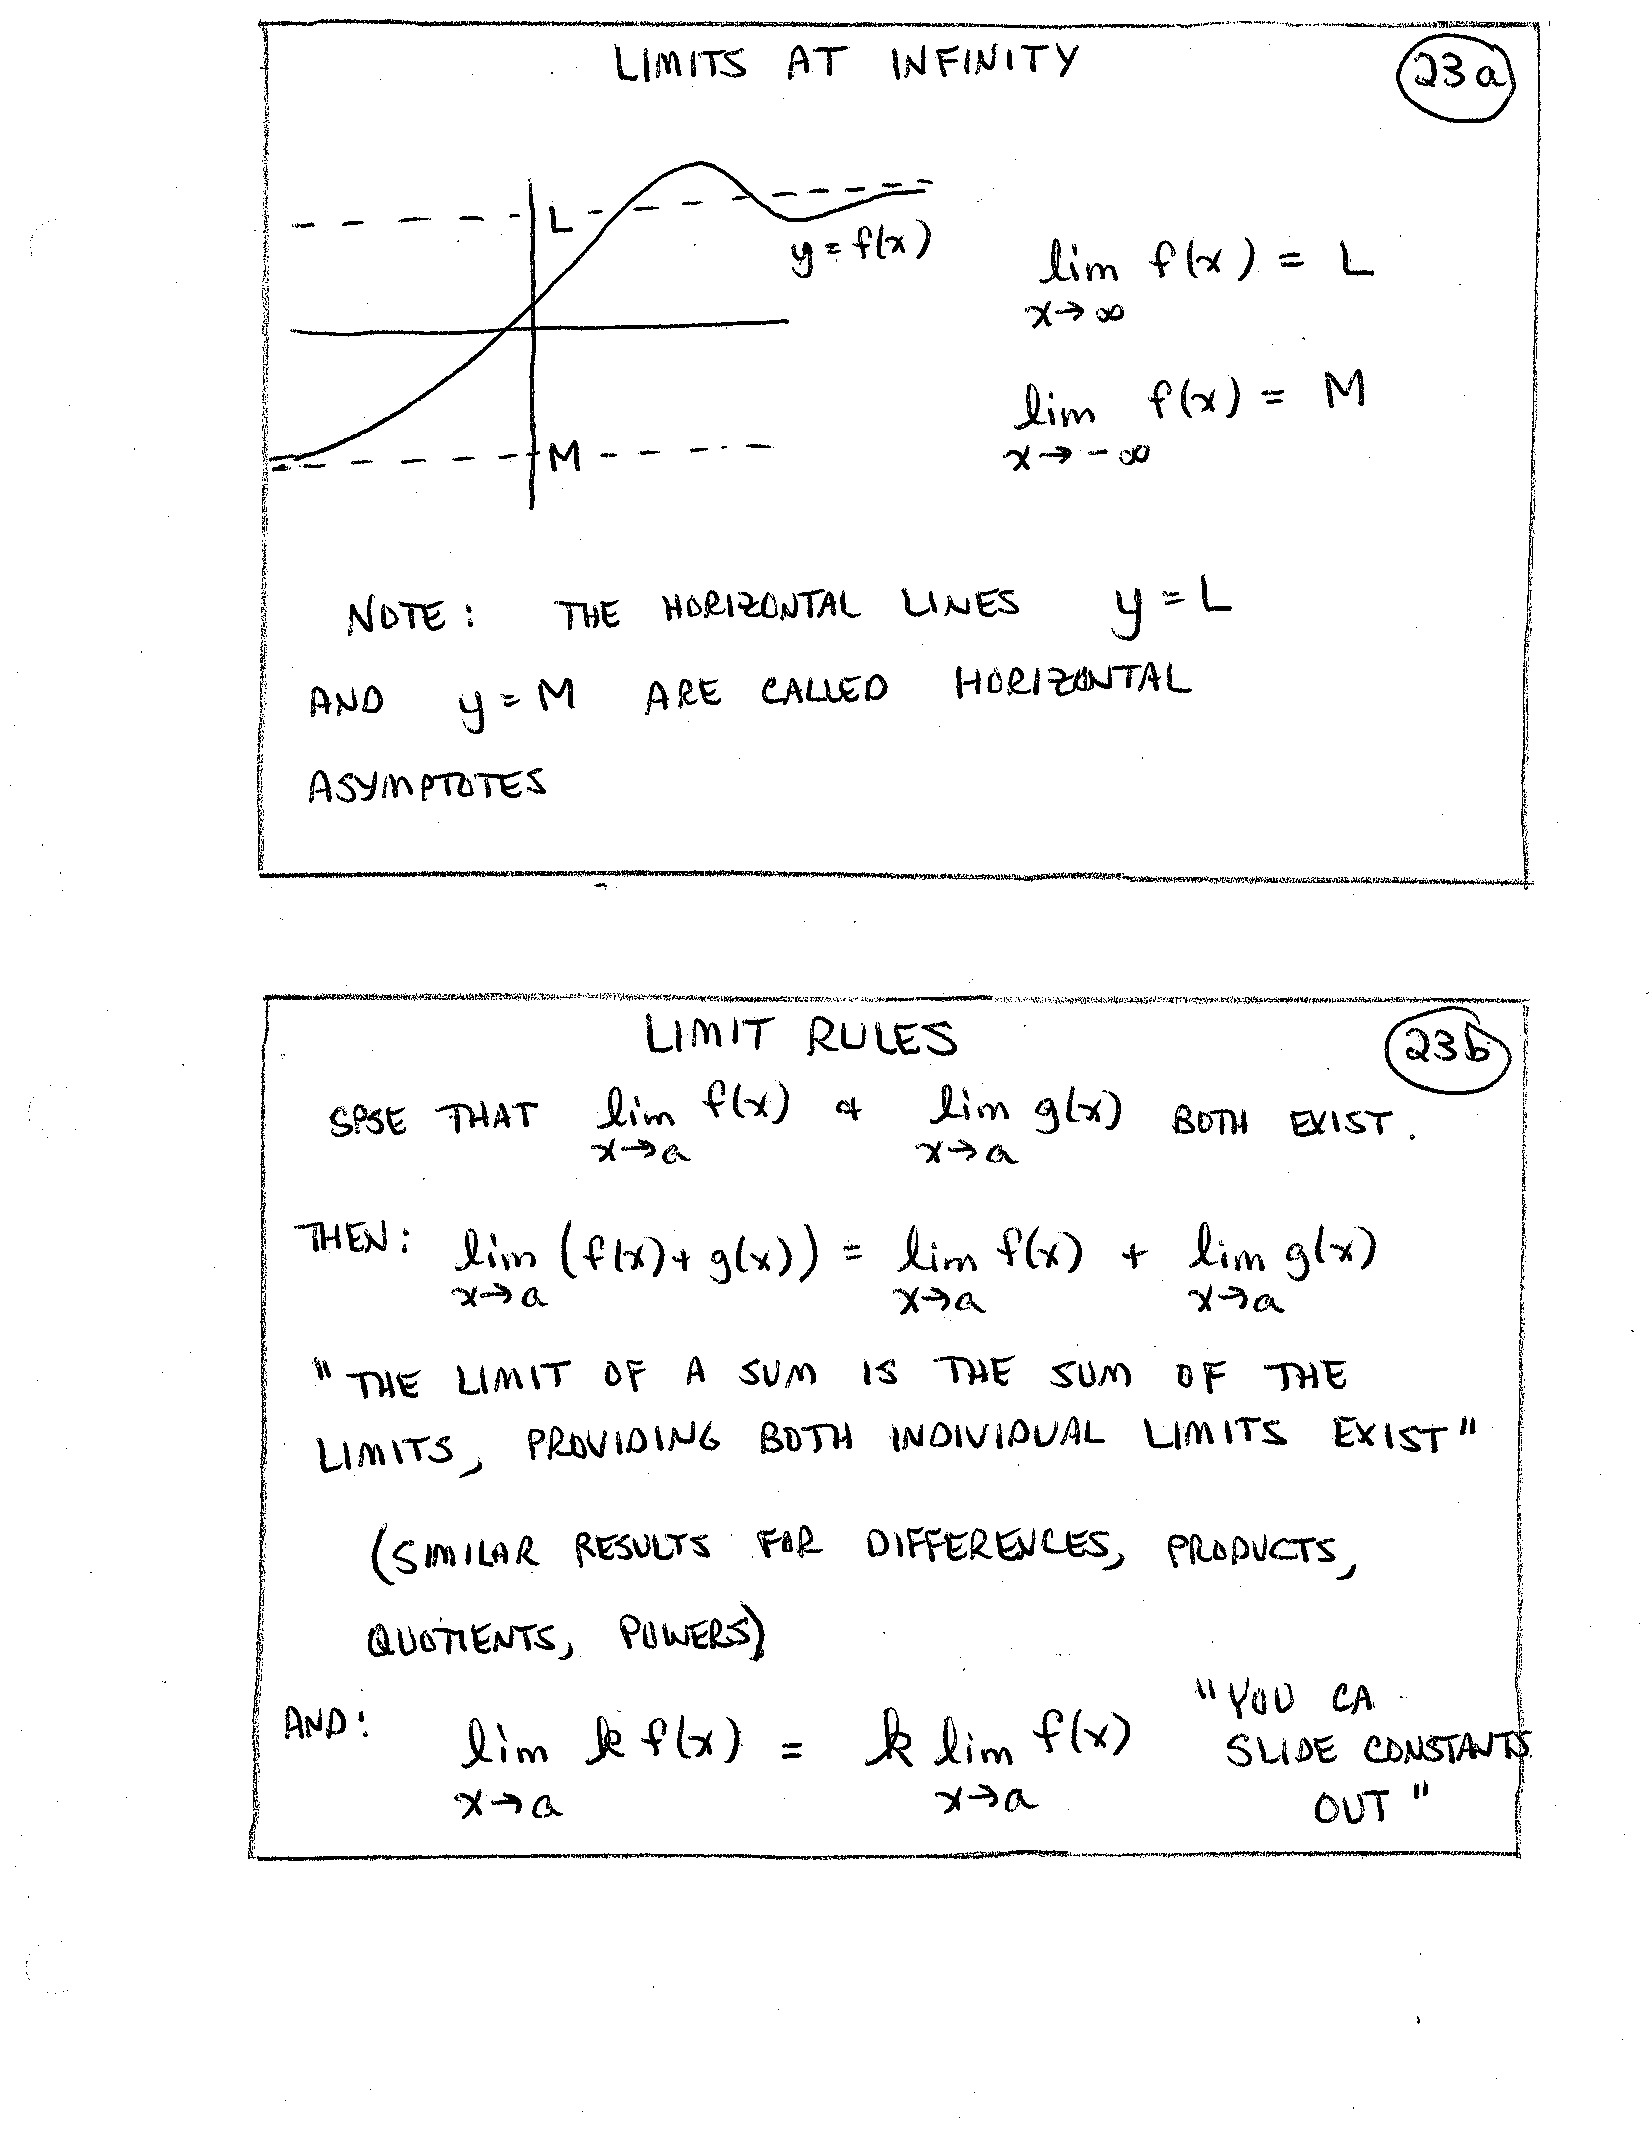 LIMITS AT INFINITY 23a
L
y = f(x)
lim f(x) = L
x→∞
lim f(x) = M
x→-∞
M
NOTE: THE HORIZONTAL LINES y = L
AND y = M ARE CALLED HORIZONTAL
ASYMPTOTES
LIMIT RULES 23b
SPSE THAT lim f(x) & lim g(x) BOTH EXIST.
x→a x→a
THEN: lim (f(x) + g(x)) = lim f(x) + lim g(x)
x→a x→a x→a
"THE LIMIT OF A SUM IS THE SUM OF THE
LIMITS, PROVIDING BOTH INDIVIDUAL LIMITS EXIST"
(SIMILAR RESULTS FOR DIFFERENCES, PRODUCTS,
QUOTIENTS, POWERS)
AND: lim k f(x) = k lim f(x)
x→a x→a
"YOU CA
SLIDE CONSTANTS
OUT"